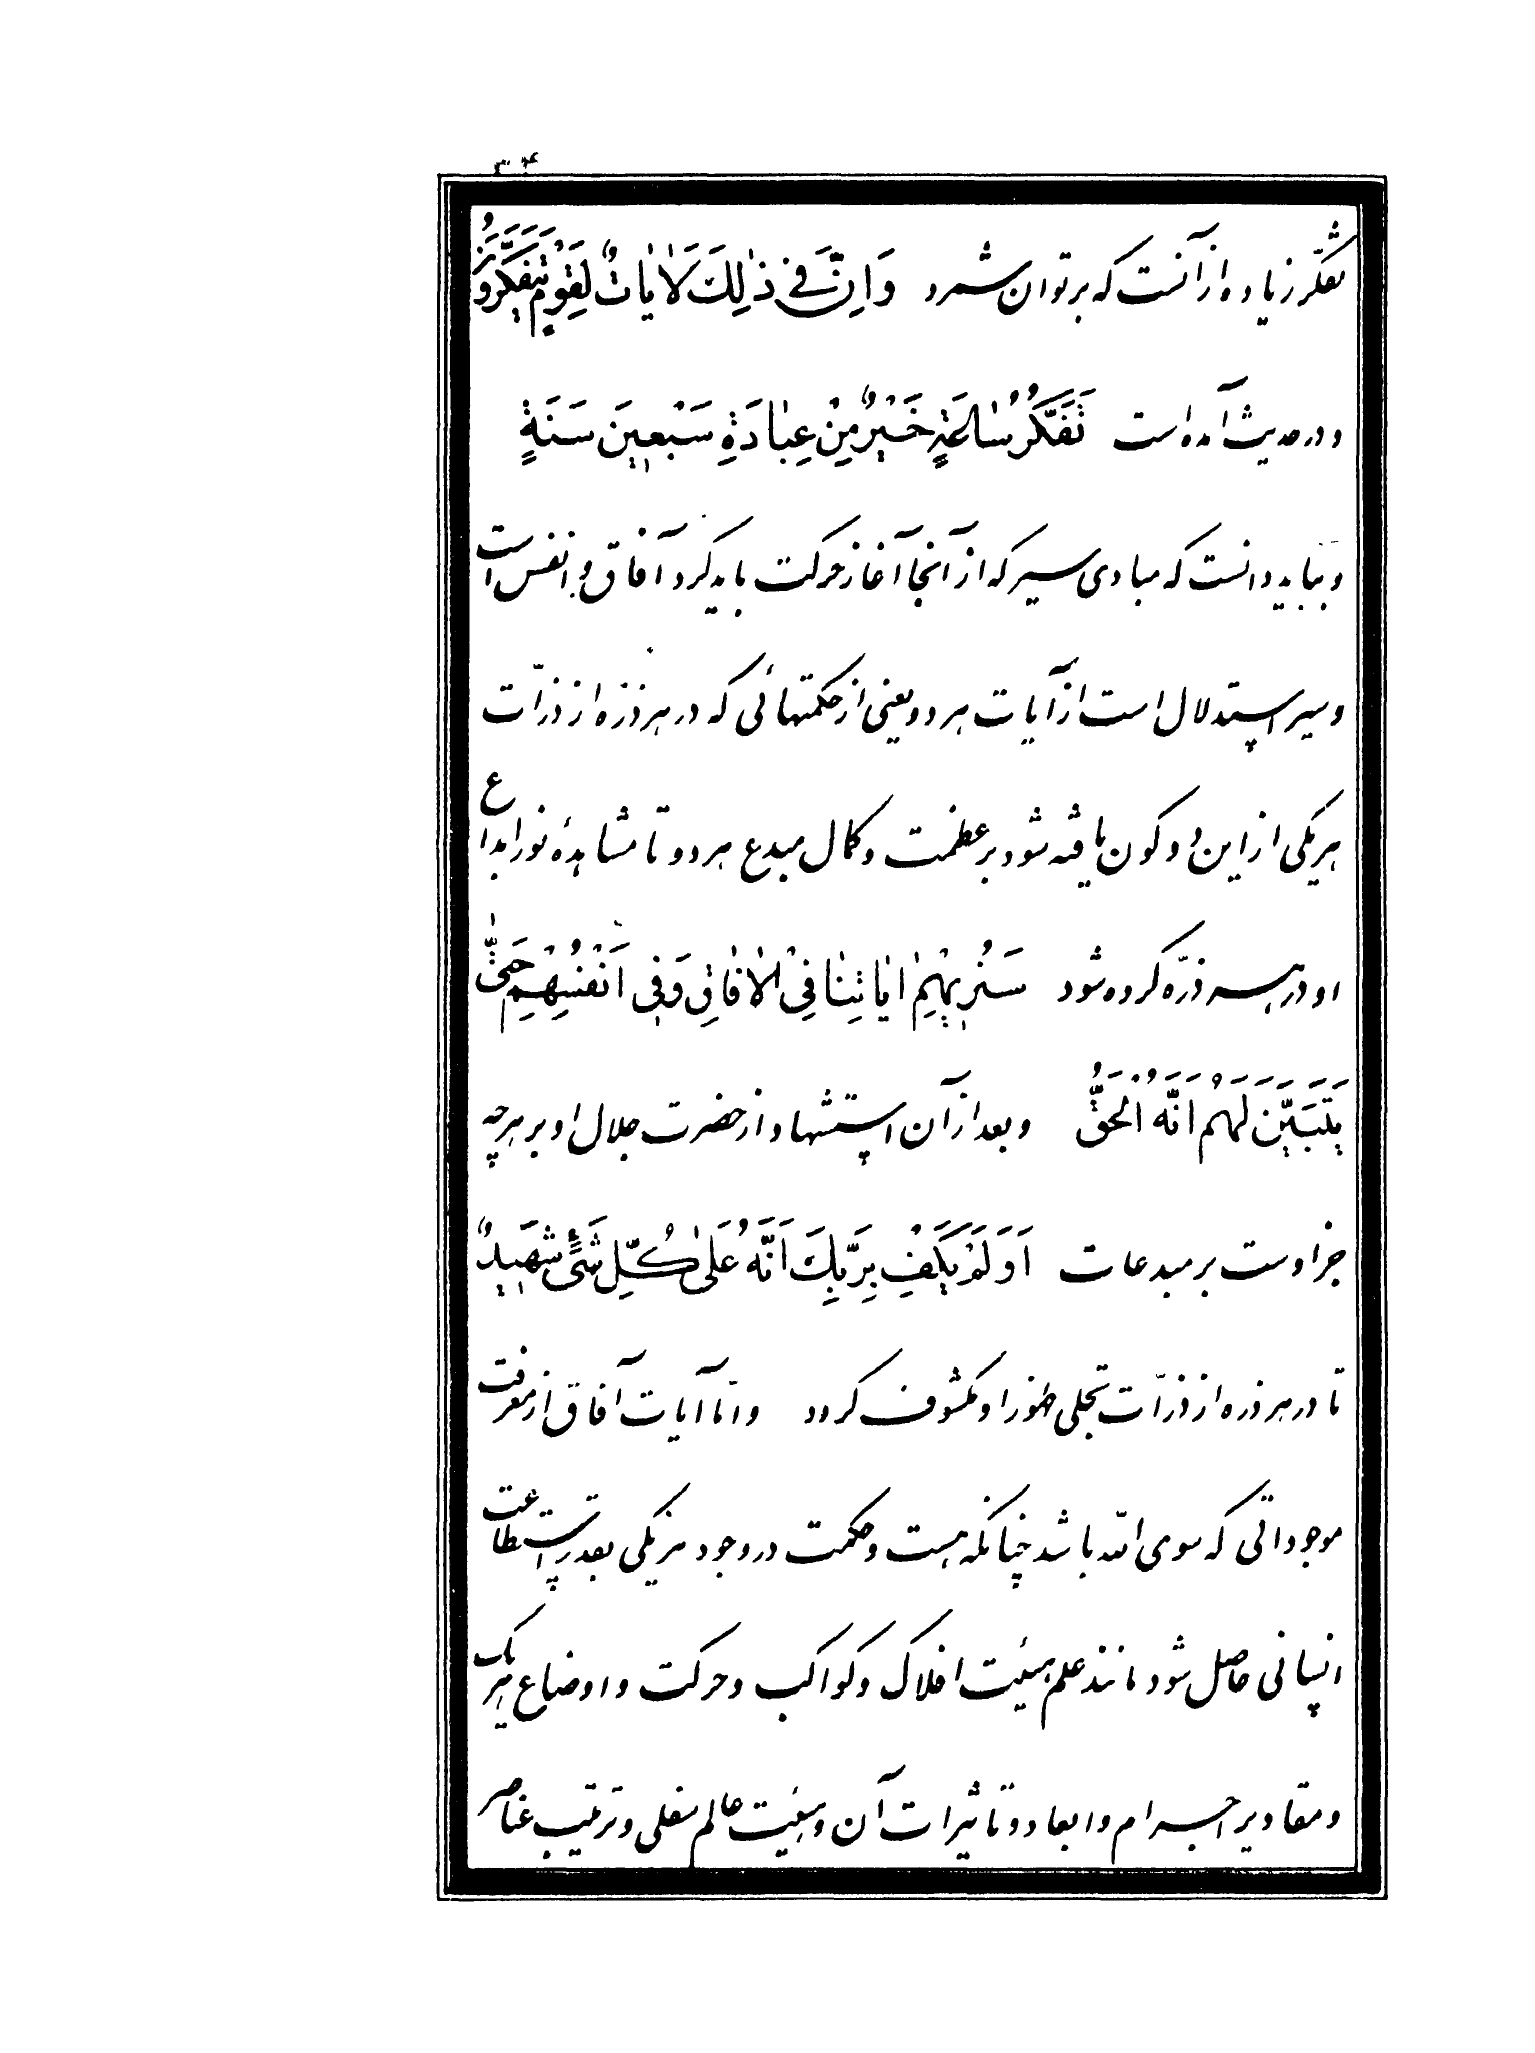 ۳۴
تفکّر زیاده از آنست که برتوان شمرد وَاِنَّ فی ذٰلِكَ لَاٰیٰاتٌ لِقَوْمٍ یَتَفَکَّرُونَ
و در حدیث آمده است تَفَکُّرُ سٰاعَةٍ خَیْرٌ مِنْ عِبٰادَةِ سَبْعینَ سَنَةٍ
و بباید دانست که مبادی سیر که از آنجا آغاز حرکت باید کرد آفاق و انفس است
و سیر استدلال است از آیات هر دو یعنی از حکمتهائی که در هر ذره از ذرّات
هر یکی از این دو کون یافته شود بر عظمت و کمال مبدع هر دو تا مشاهدۀ نور ابداع
او در هر ذرّه کرده شود سَنُریهِمْ اٰیٰاتِنٰا فِی الْاٰفٰاقِ وَفی اَنْفُسِهِمْ حَتّٰی
یَتَبَیَّنَ لَهُمْ اَنَّهُ الْحَقُّ و بعد از آن استشهاد از حضرت جلال او بر هر چه
جز اوست بر مبدعات اَوَلَمْ یَکْفِ بِرَبِّكَ اَنَّهُ عَلیٰ کُلِّ شَیْءٍ شَهیدٌ
تا در هر ذره از ذرّات تجلی ظهور او مکشوف کردد و امّا آیات آفاق از معرفت
موجوداتی که سوی الله باشد چنانکه هست و حکمت در وجود هر یکی بقدر استطاعت
انسانی حاصل شود مانند علم هیئت افلاک و کواکب و حرکت و اوضاع هر یک
و مقادیر اجرام و ابعاد و تاثیرات آن و هیئت عالم سفلی و ترتیب عناصر